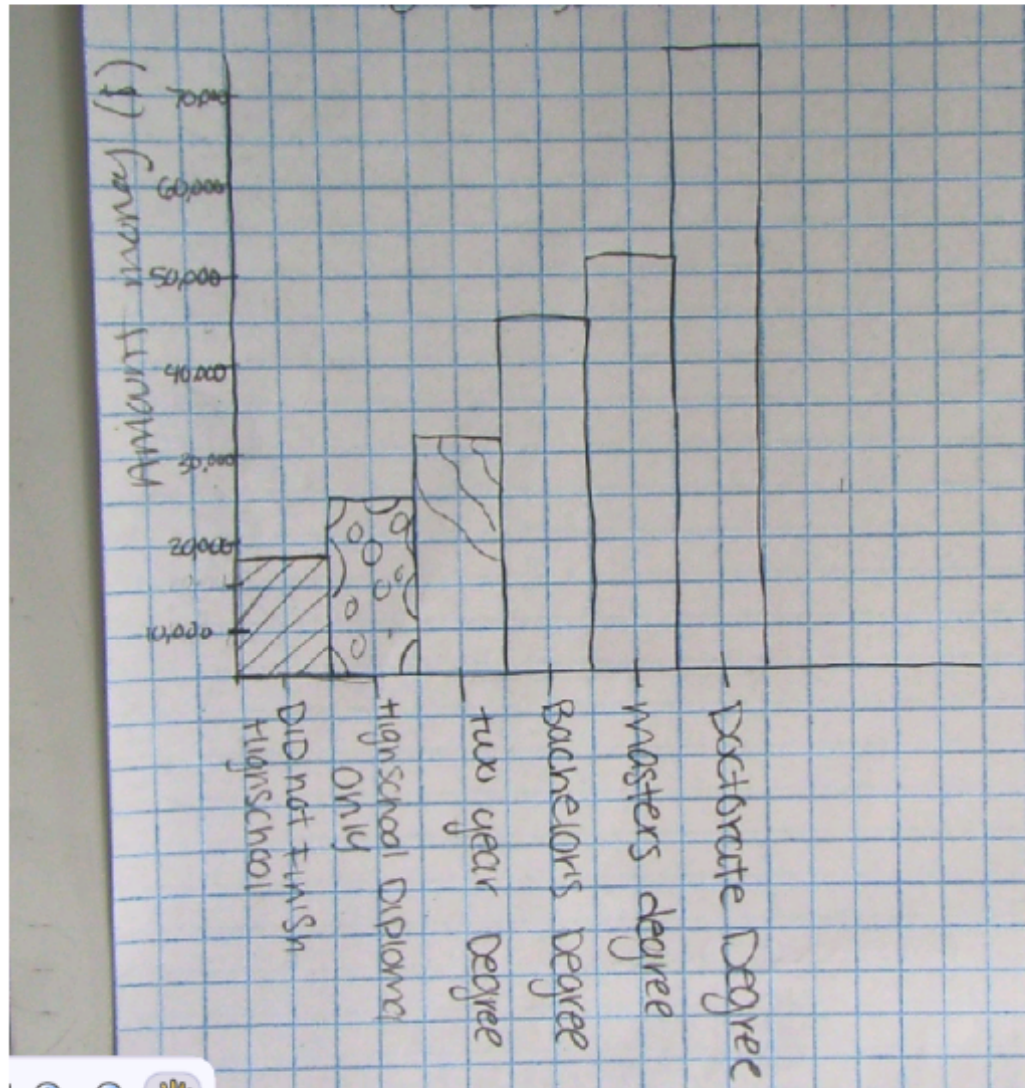 Amount money ($)
70,000
60,000
50,000
40,000
30,000
20,000
10,000
DID not finish
Highschool
Highschool Diploma
only
two year Degree
Bachelors Degree
masters degree
Doctorate Degree